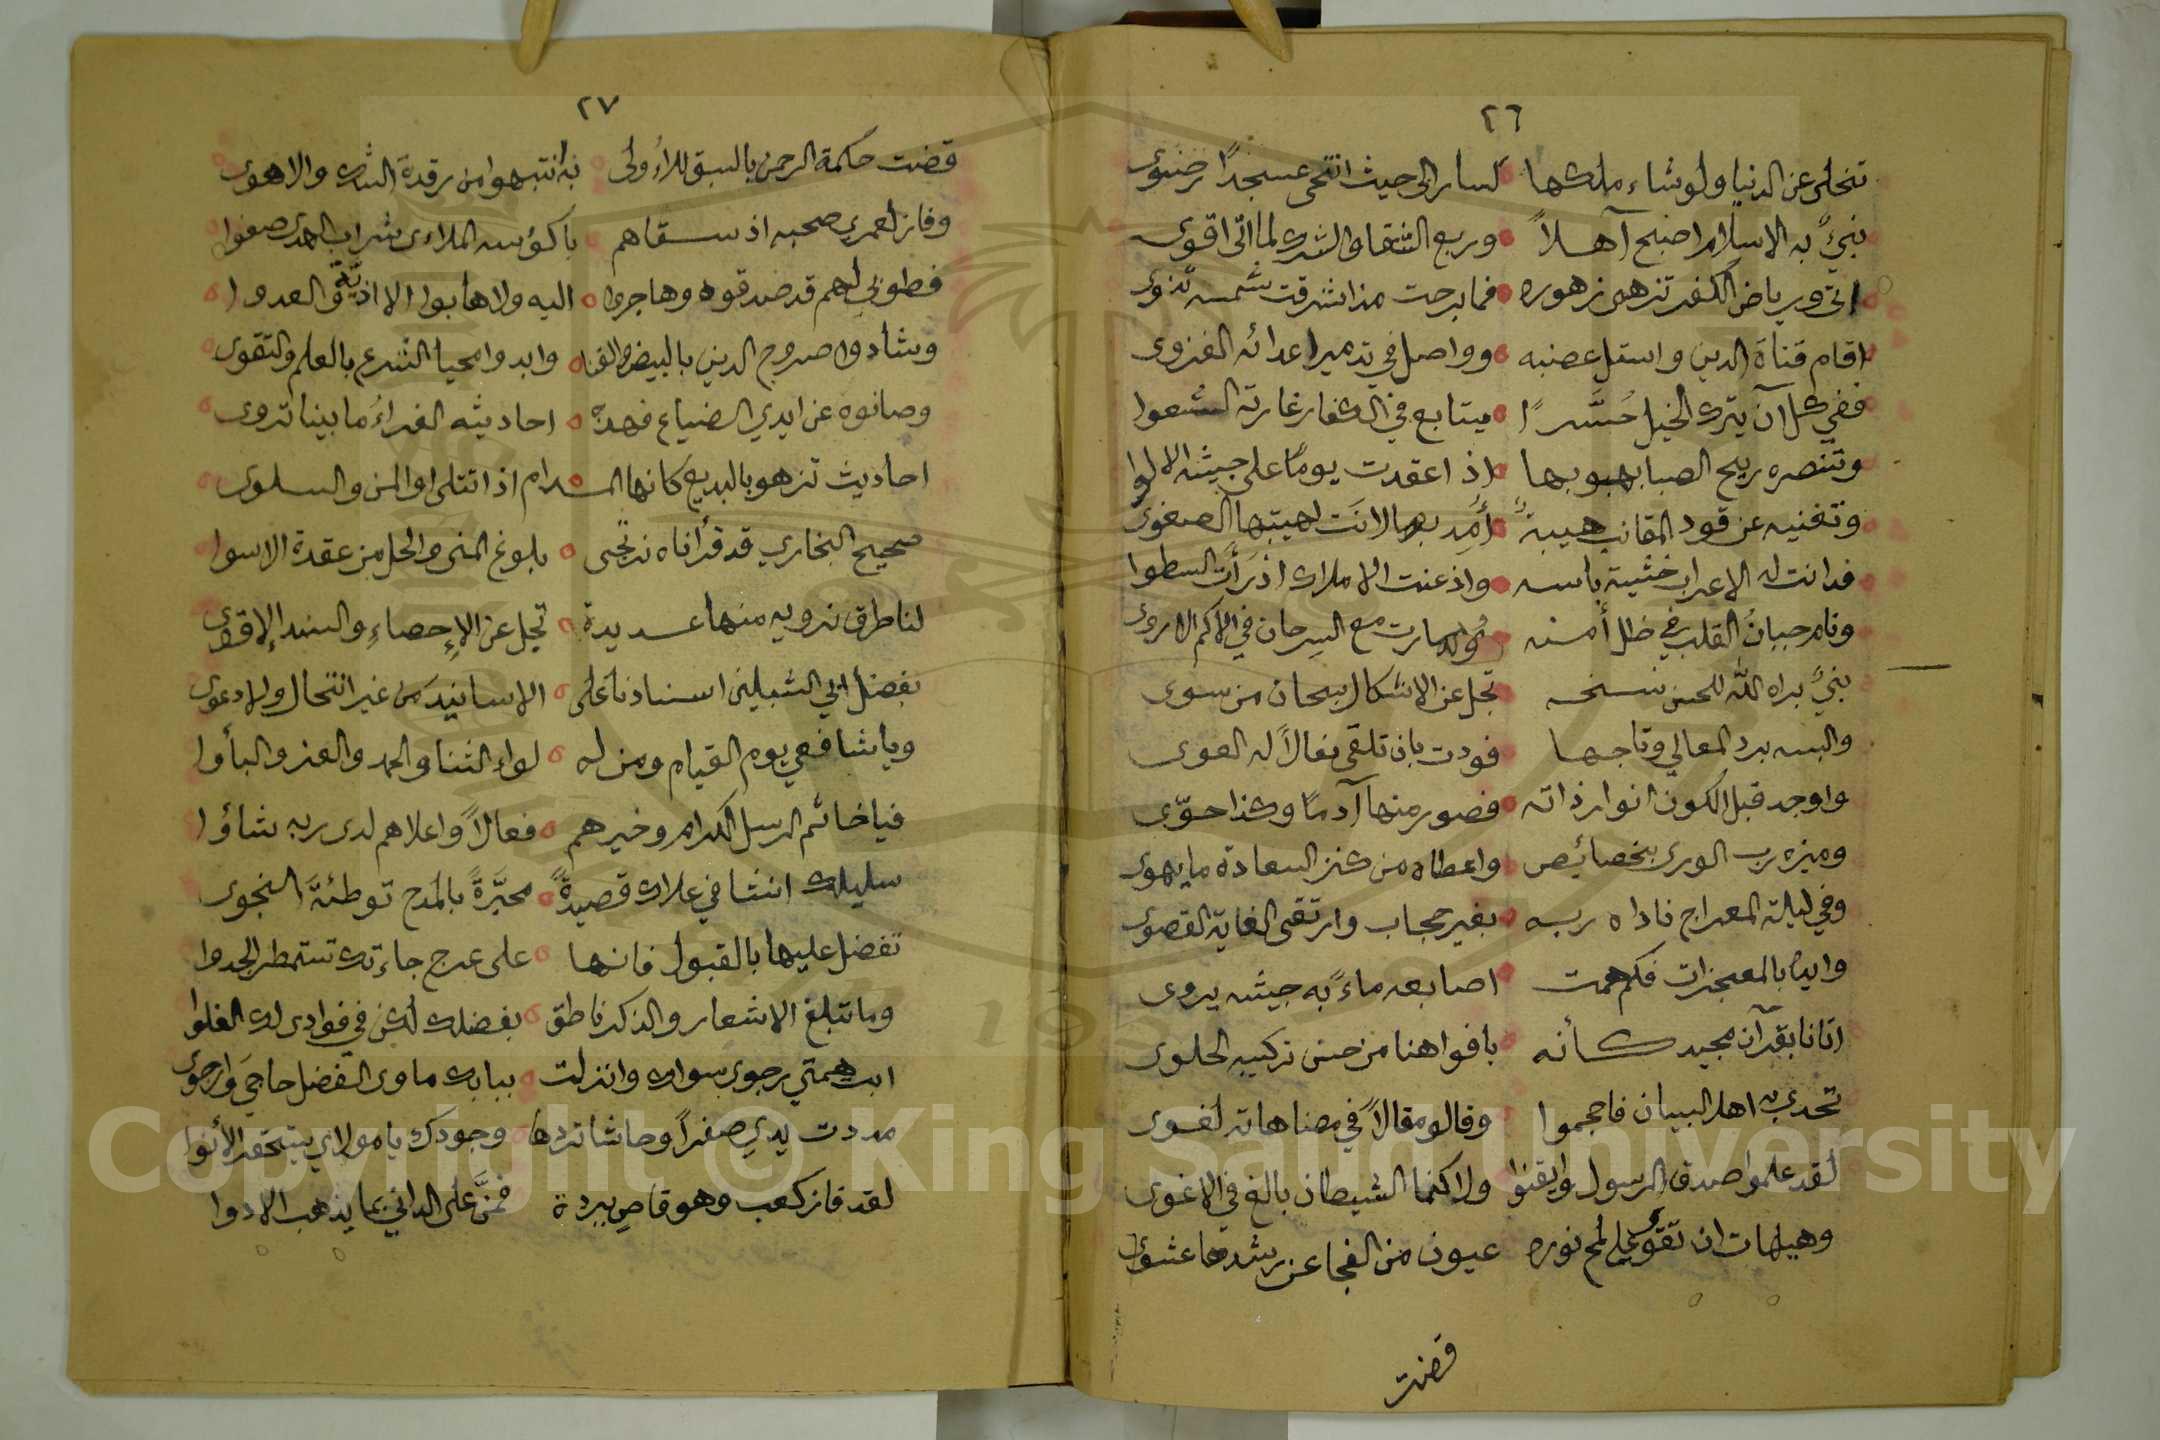 ٢٦
تخلى عن الدنيا ولو شاء ملكها لسار الى حيث انتحى عسجدًا رضوى
نبيٌ به الاسلام اصبح آهلاً وربع الشقا والشرك لما اتى اقوى
اتى ورياض الكفر تزهى زهوره فما برحت مذ اشرقت شمسه تذوى
اقام قناة الدين واستل عضبه وواصل في تدمير اعدائه الغزوى
ففي كل آن يترك الخيل حُسَّرًا يتابع في الكفار غارته الشعوا
وتنصره ريح الصبا بهبوبها اذا عقدت يومًا على جيشه الالوا
وتغنيه عن قود المقانب هيبةٌ أُمِد بها لانت لهيبتها الصفوى
فدانت له الاعراب خشية باسه واذعنت الاملاك اذ رَأت السطوا
ونام جبانُ القلب في ظل أمنه مع السِرحان في الاكم الاروى
نبيٌ براه الله للحسن نسخه تجل عن الاشكال سبحان من سوى
والبسه برد المعالي وتاجها فودت بان تلقى نعالاً له العوى
واوجد قبل الكون انوار ذاته فصور منها آدمًا وكذا حوّى
وميزه رب الورى بخصائيص واعطاه من كنز السعادة ما يهوى
وفي ليلة المعراج ناداه ربه بغير حجاب وارتقى الغاية القصوى
وايده بالمعجزات فكم همت اصابعه ماءً به جيشه يروى
اتانا بقرآن مجيد كأنه بافواهنا من حسن تركيبه الحلوى
تحدى به اهل البيان فاحجموا وقالو مقالاً في مضاهاته لغوى
لقد علموا صدق الرسول وايقنوا ولاكنما الشيطان بالغ في الاغوى
وهيهات ان تقوى على لمح نوره عيون من الفجا عن رشدها عشوى
قضت
٢٧
قضت حكمة الرحمن بالسبق للأولى به انتبهوا من رقدة الشك والاهوى
وفاز لعمري صحبه اذ سقاهم باكؤسه الملاءى شراب الهدى صفوا
فطوبى لهم قد صدقوه وهاجروا اليه ولا هابوا الا اذيّة والعدوا
وشادوا صروح الدين بالبيض والقنا وابدوا محيا الشرع بالعلم والتقوى
وصانوه عن ايدي الضياع فهذه احاديثه الغراءُ ما بيننا تروى
احاديث تزهو بالبديع كانها المدام اذا تتلى او المن والسلوى
صحيح البخاري قد قرأناه نرتجى بلوغ المنى والحل من عقدة الاسوا
لنا طرق نرويه منها عديدة تجل عن الإحصاءِ والسند الإقوى
بفضل ابي الشبلين اسنادنا على الاسانيد من غير انتحال ولا دعوى
ويا شافعي يوم القيام ومن له لواء الثنا والحمد والعز والبأوا
فيا خاتم الرسل الكرام وخيرهم فعالاً واعلاهم لدى ربه شاؤا
سليلك انشا في علاك قصيدةً محبَّرةً بالمدح توطئةَ النجوى
تفضل عليها بالقبول فانها على عرج جاءتك تستمطر الجدوا
وما تبلغ الاشعار والذكر ناطق بفضلك لكن في فؤادى لك الغلوا
ابت همتي رجوى سواك وانزلت ببابك ماوى الفضل حاجيَ وارجوى
مددت يدي صفراً وحاشا تردها وجودك يا مولاي يستحقر الأنوا
لقد فاز كعب وهو قاصٍ ببردة فمنَّ على الداني بما يذهب الادوا
Copyright © King Saud University